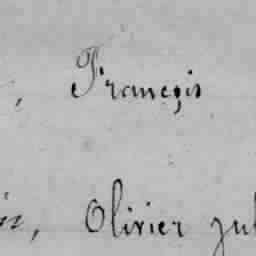 , François
in, Olivier jul